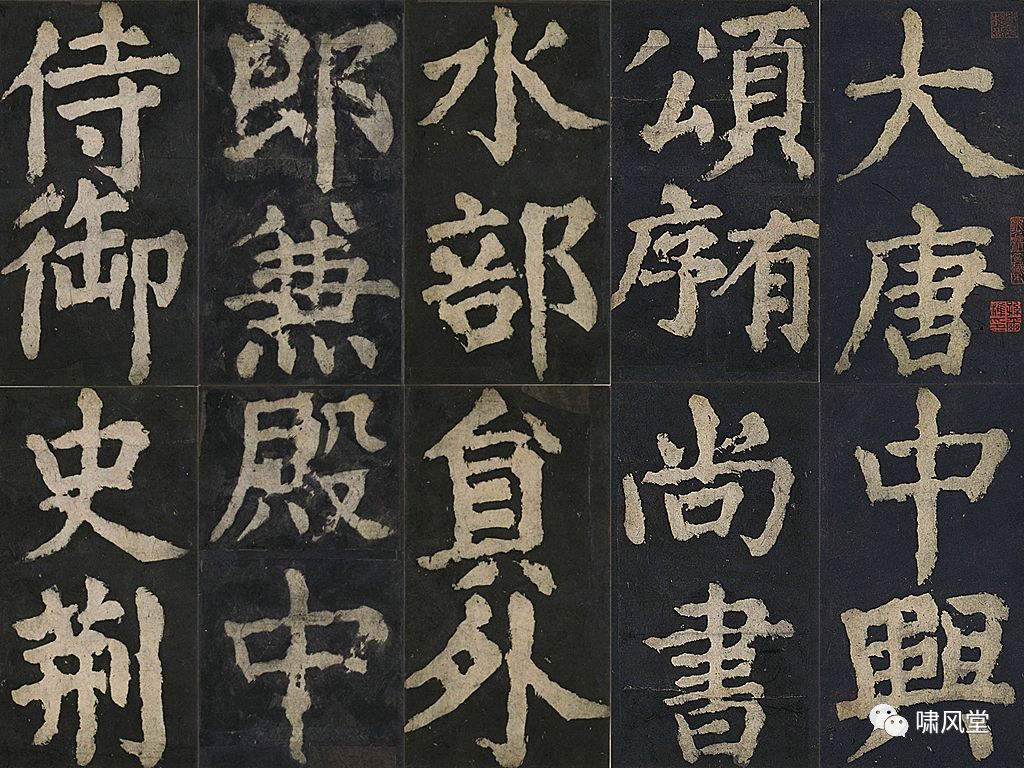 大唐中興
頌有序尚書
水部貟外
郎兼殿中
侍御史荊
啸风堂